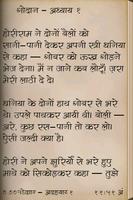 गोदान - अध्याय १
होरीराम ने दोनों बैलों को
सानी-पानी देकर अपनी स्त्री धनिया
से कहा — गोबर को ऊख गोड़ने
भेज देना। मैं न जाने कब लौटूँ। ज़रा
मेरी लाठी दे दे।
धनिया के दोनों हाथ गोबर से भरे
थे। उपले पाथकर आयी थी। बोली —
अरे, कुछ रस-पानी तो कर लो।
ऐसी जल्दी क्या है।
होरी ने अपने झुर्रियों से भरे हुए
माथे को सिकोड़कर कहा — तुझे